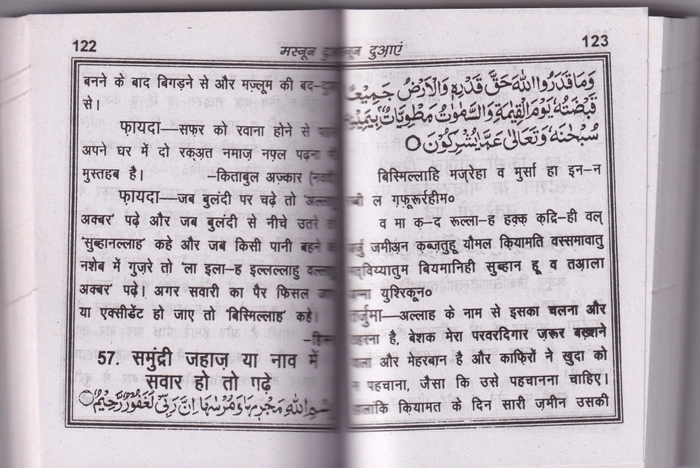 122
मस्नून
बनने के बाद बिगड़ने से और मज़्लूम की बद-
से।
फ़ायदा—सफ़र को रवाना होने से
अपने घर में दो रक्अत नमाज़ नफ़्ल पढ़ना
मुस्तहब है। —किताबुल अज़्कार
फ़ायदा—जब बुलंदी पर चढ़े तो
अक्बर' पढ़े और जब बुलंदी से नीचे उतरे
'सुब्हानल्लाह' कहे और जब किसी पानी बहने
नशेब में गुज़रे तो 'ला इला-ह इल्लल्लाहु
अक्बर' पढ़े। अगर सवारी का पैर फिसल
या एक्सीडेंट हो जाए तो 'बिस्मिल्लाह' कहे।
57. समुंद्री जहाज़ या नाव में
सवार हो तो पढ़े
اللّٰهِ مَجْرٖىهَا وَمُرْسٰهَا اِنَّ رَبِّىْ لَغَفُوْرٌ رَّحِيْمٌ
दुआएं
123
وَمَا قَدَرُوا اللّٰهَ حَقَّ قَدْرِهٖ وَالْاَرْضُ جَمِيْعًا
قَبْضَتُهٗ يَوْمَ الْقِيٰمَةِ وَالسَّمٰوٰتُ مَطْوِيّٰتٌۢ بِيَمِيْنِهٖ
سُبْحٰنَهٗ وَتَعَالٰى عَمَّا يُشْرِكُوْنَ○
बिस्मिल्लाहि मज्रेहा व मुर्सा हा इन-न
ल ग़फ़ूरुर्रहीम०
व मा क़-द रुल्ला-ह हक़्क़ क़द्रि-ही वल्
जमीअ़न क़ब्ज़तुहू यौमल क़ियामति वस्समावातु
बियमानिही सुब्हान हू व तआ़ला
युश्रिकून०
—अल्लाह के नाम से इसका चलना और
है, बेशक मेरा परवरदिगार ज़रूर बख़्शने
और मेहरबान है और काफ़िरों ने ख़ुदा को
पहचाना, जैसा कि उसे पहचानना चाहिए।
कि क़ियामत के दिन सारी ज़मीन उसकी